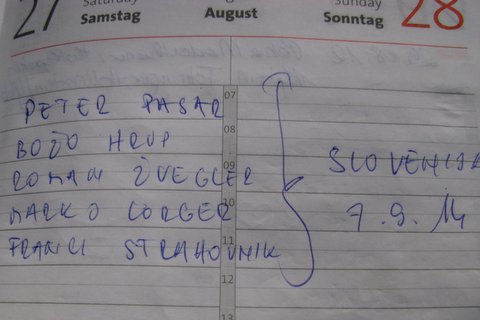 27 Saturday Samstag August Sunday Sonntag 28
07
PETER PASAR
08
BOŽO HRUP
09
ROMAN ŽVEGLER
10
MARKO CORGER
11
FRANCI STRAHOVNIK
12
13
SLOVENIJA
7.9.14